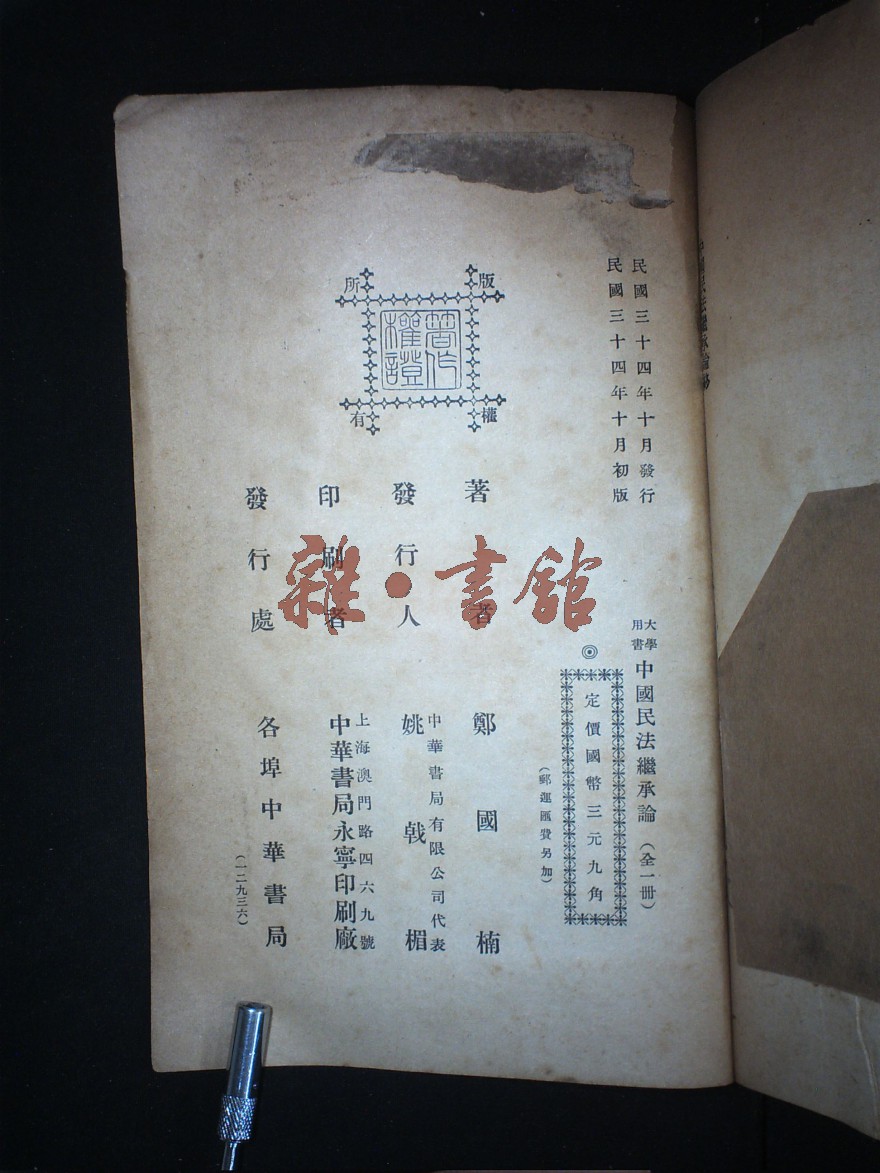 民國三十四年十月發行
民國三十四年十月初版
大學用書
中國民法繼承論(全一冊)
◎
定價國幣三元九角
(郵運匯費另加)
版權所有
著作權證
著者 鄭國楠
發行人 中華書局有限公司代表 姚戟楣
印刷者 上海澳門路四六九號 中華書局永寧印刷廠
發行處 各埠中華書局
(一二九三六)
雜·書館